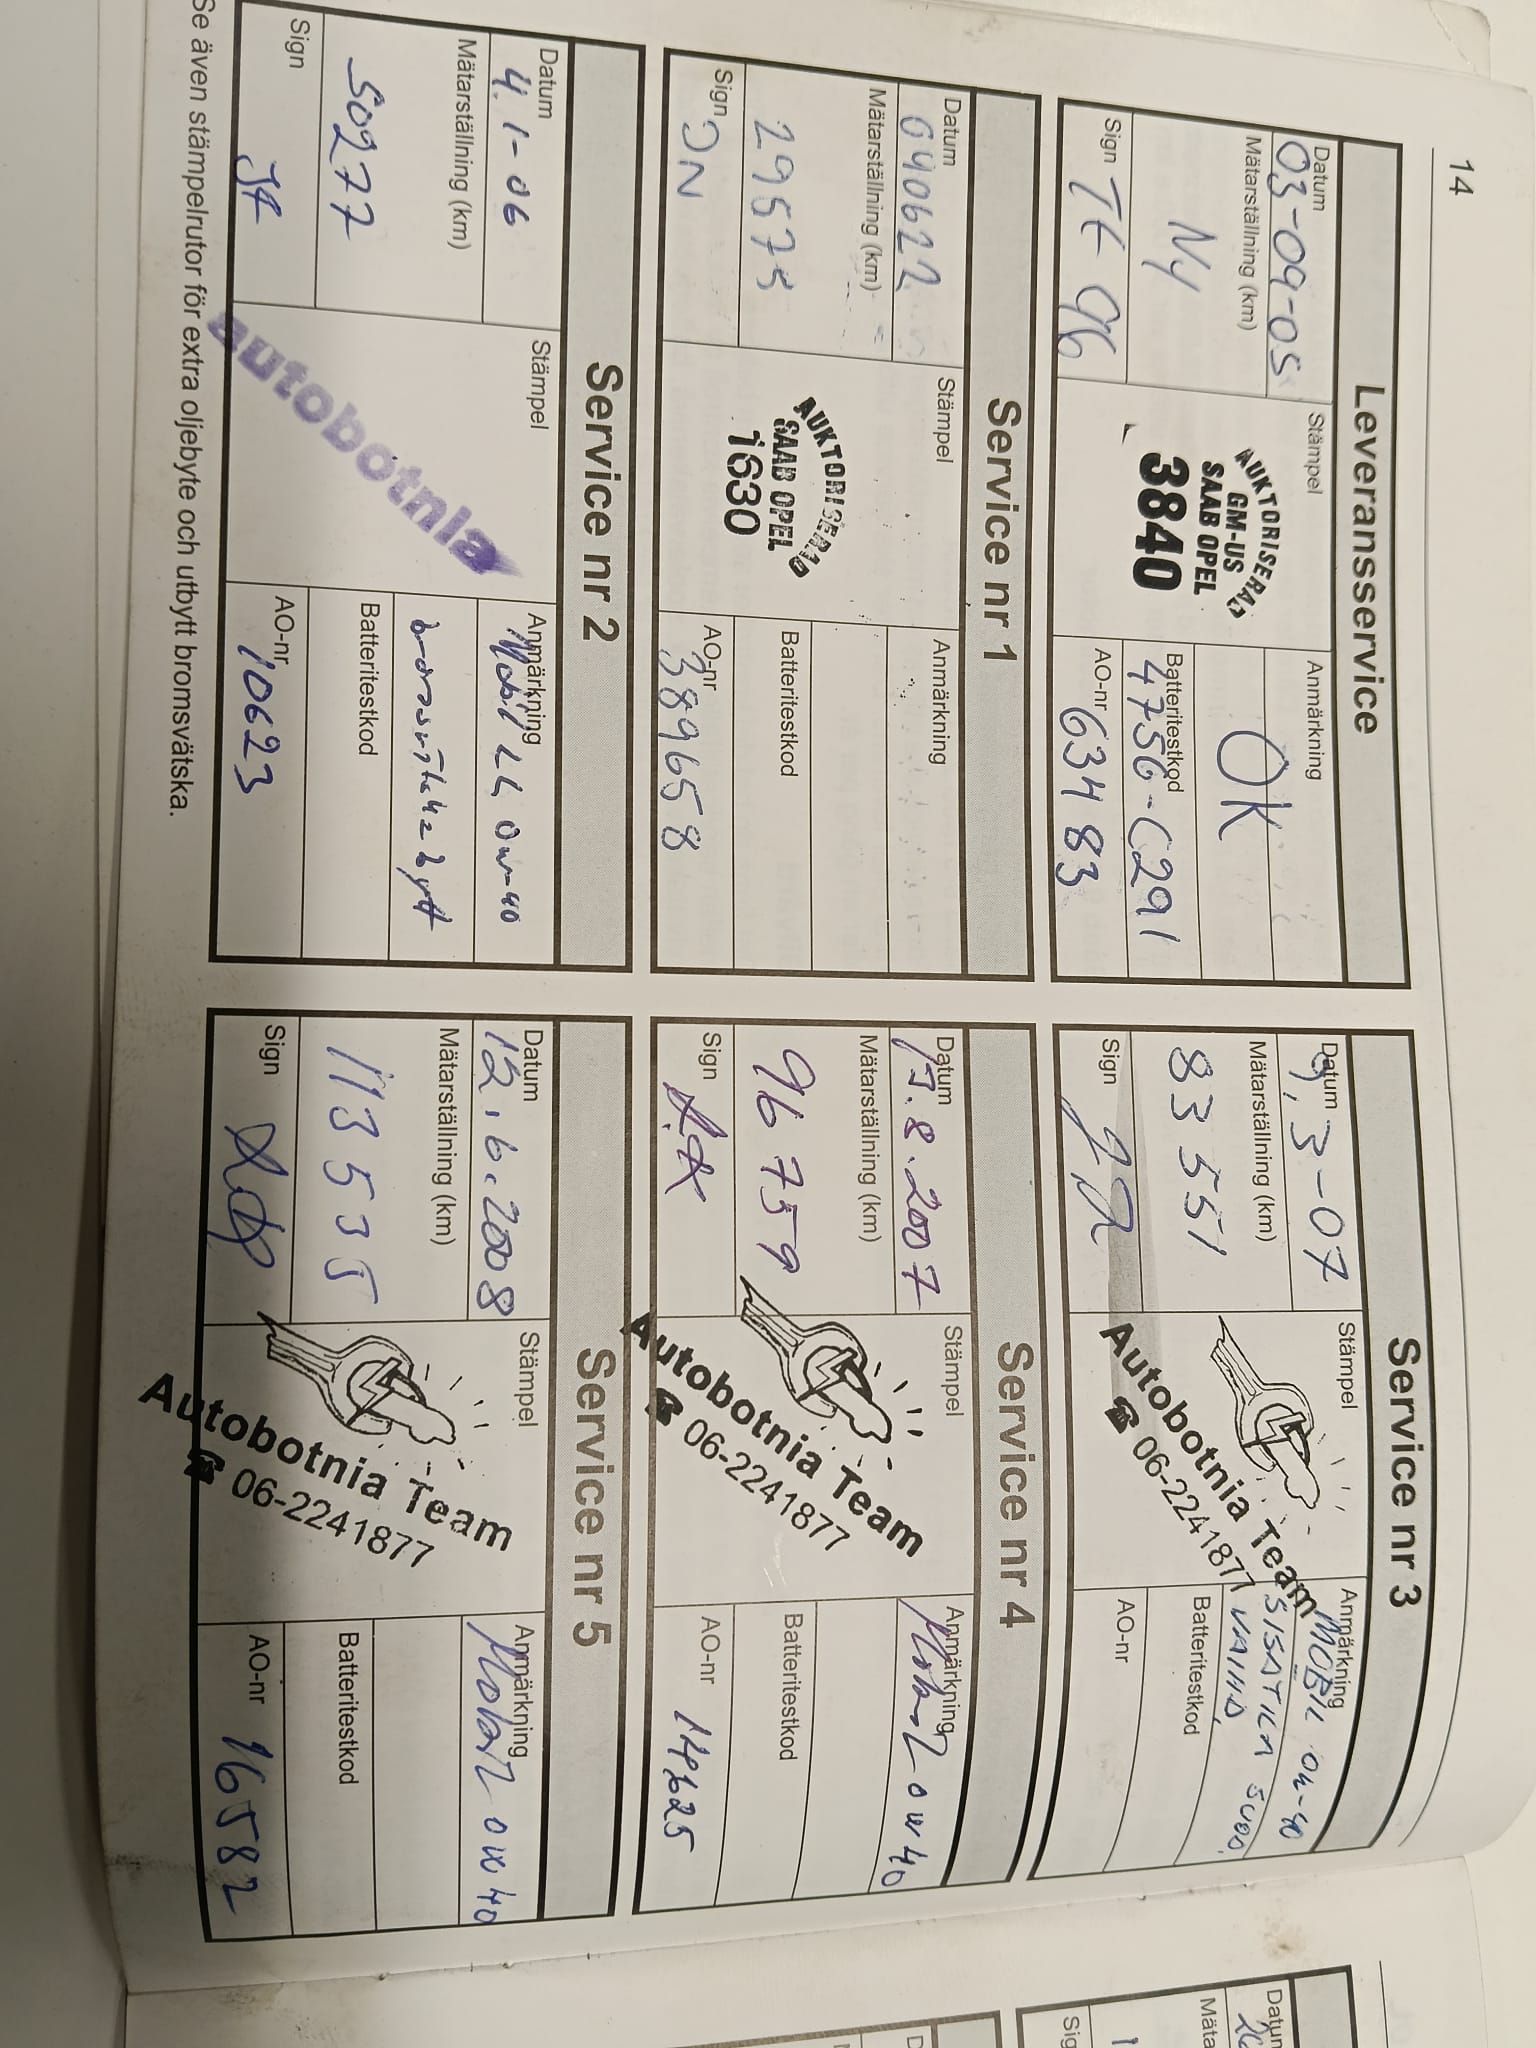 14
Leveransservice
Datum
03-09-05
Mätarställning (km)
Ny
Sign TK 96
Stämpel
AUKTORISERAD
GM-US
SAAB OPEL
3840
Anmärkning
OK
Batteritestkod
4756-C291
AO-nr 634183
Service nr 1
Datum
040622
Mätarställning (km)
29575
Sign
JN
Stämpel
AUKTORISERAD
SAAB OPEL
1630
Anmärkning
Batteritestkod
AO-nr
389658
Service nr 2
Datum
4.1-06
Mätarställning (km)
50277
Sign
Stämpel
autobotnia
Anmärkning
Mobil 1 0w-40
bromsvätska bytt
Batteritestkod
AO-nr
10623
Se även stämpelrutor för extra oljebyte och utbytt bromsvätska.
Service nr 3
Datum
9,3-07
Mätarställning (km)
83551
Sign
Stämpel
Autobotnia Team
☎ 06-2241877
Anmärkning
MOBIL 0W-40
SISÄTILA SUOD.
VAIHD.
Batteritestkod
AO-nr
Service nr 4
Datum
17.8.2007
Mätarställning (km)
96759
Sign
Stämpel
Autobotnia Team
☎ 06-2241877
Anmärkning
Mobil 0w40
Batteritestkod
AO-nr 14625
Service nr 5
Datum
12.6.2008
Mätarställning (km)
113535
Sign
Stämpel
Autobotnia Team
☎ 06-2241877
Anmärkning
Mobil 0w40
Batteritestkod
AO-nr 16582
Datum